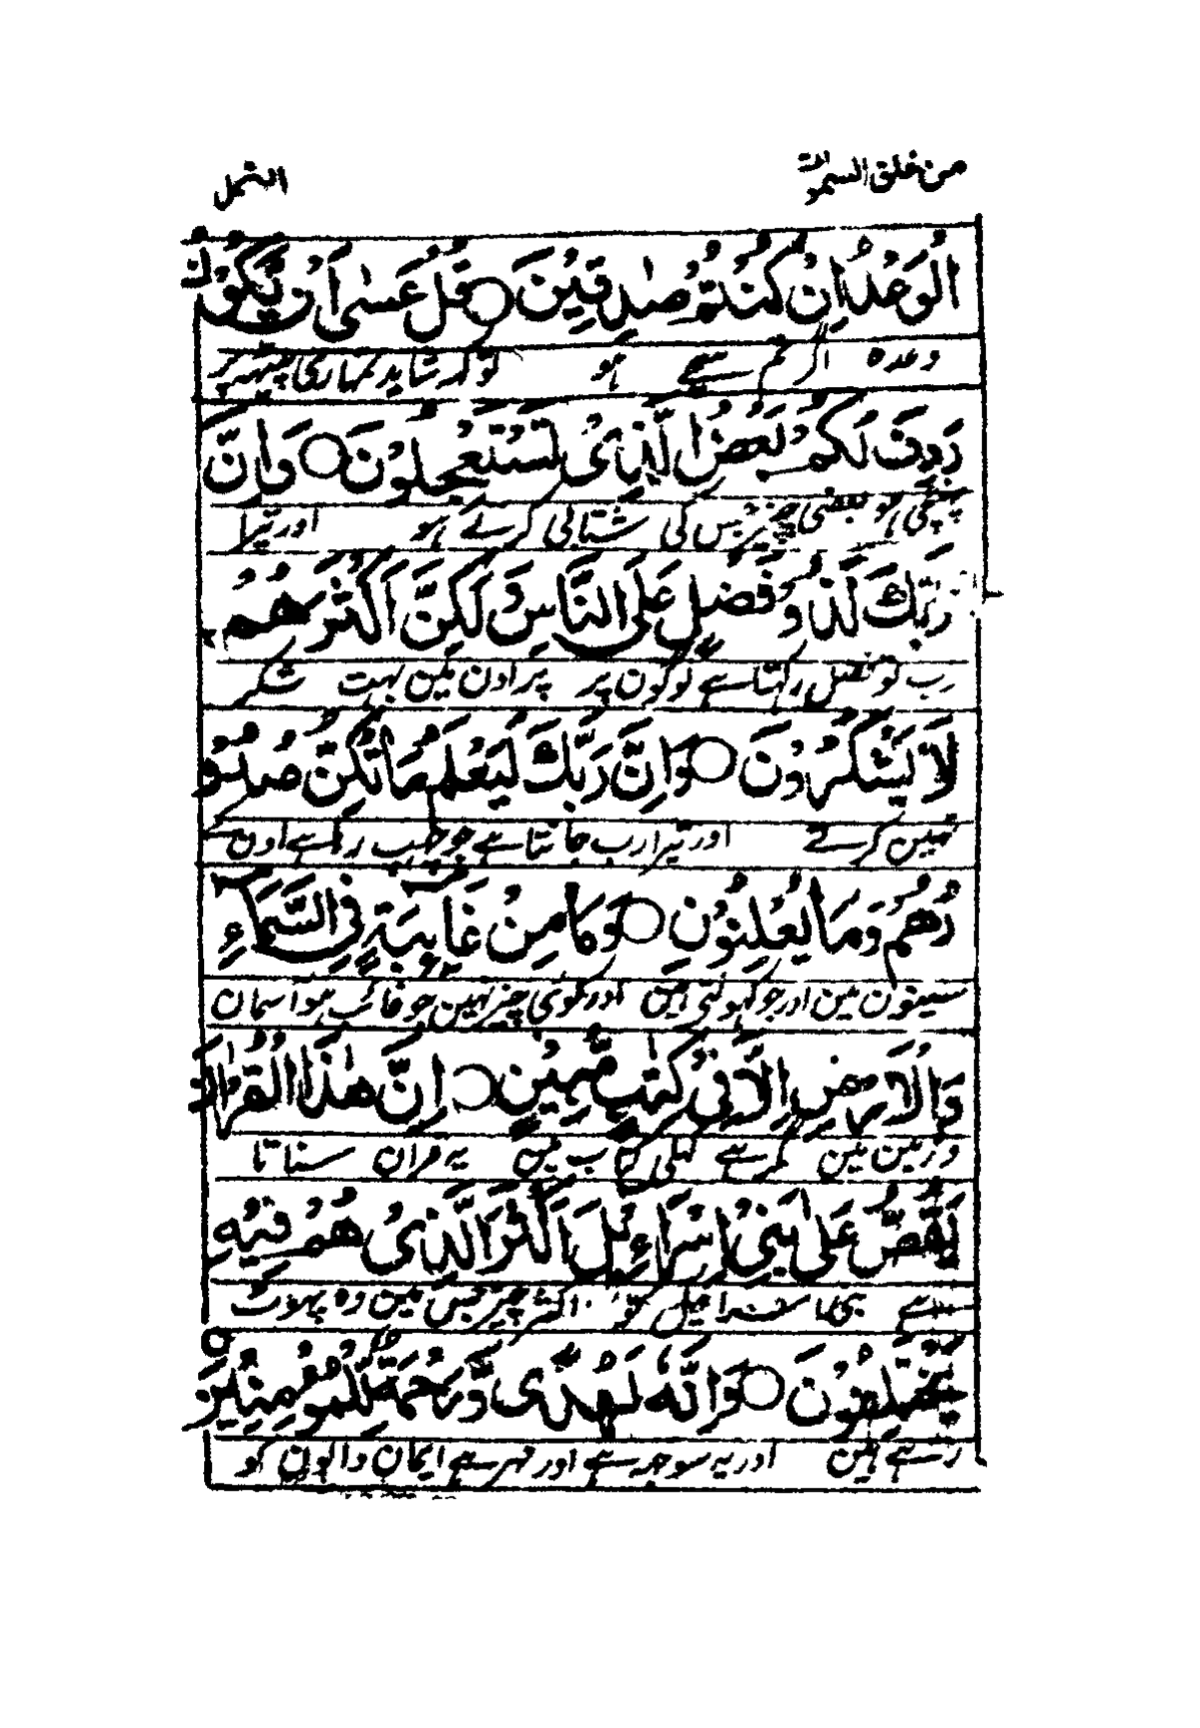 من خلق السموات النمل
الْوَعْدُ اِنْ كُنْتُمْ صٰدِقِيْنَ ○ قُلْ عَسٰى اَنْ يَّكُوْنَ
وعده اگر تم سچے ہو تو کہہ شاید تمہاری پیٹھ پر
رَدِفَ لَكُمْ بَعْضُ الَّذِىْ تَسْتَعْجِلُوْنَ ○ وَاِنَّ
پہنچی ہو بعضی چیز جس کی شتابی کرتے ہو اور تیرا
رَبَّكَ لَذُوْ فَضْلٍ عَلَى النَّاسِ وَلٰكِنَّ اَكْثَرَهُمْ
رب تو فضل رکہتا ہے لوگون پر پر اون مین بہت شکر
لَا يَشْكُرُوْنَ ○ وَاِنَّ رَبَّكَ لَيَعْلَمُ مَا تُكِنُّ صُدُوْ
نہین کرتے اور تیرا رب جانتا ہے جو چہپ رہا ہے اون کے
رُهُمْ وَمَا يُعْلِنُوْنَ ○ وَمَا مِنْ غَآئِبَةٍ فِى السَّمَآءِ
سینون مین اور جو کہولتے ہین اور کوئی چیز نہین جو غائب ہو آسمان
وَالْاَرْضِ اِلَّا فِىْ كِتٰبٍ مُّبِيْنٍ ○ اِنَّ هٰذَا الْقُرْاٰنَ
و زمین مین مگر ہے کہلی کتاب مین یہ قران سناتا
يَقُصُّ عَلٰى بَنِىْ اِسْرَآءِيْلَ اَكْثَرَ الَّذِىْ هُمْ فِيْهِ
ہے بنی اسرائیل کو اکثر چیز جس مین وہ پہوٹ
يَخْتَلِفُوْنَ ○ وَاِنَّهٗ لَهُدًى وَّرَحْمَةٌ لِّلْمُؤْمِنِيْنَ ○
رہے ہین اور یہ سوجہ ہے اور مہر ہے ایمان والون کو